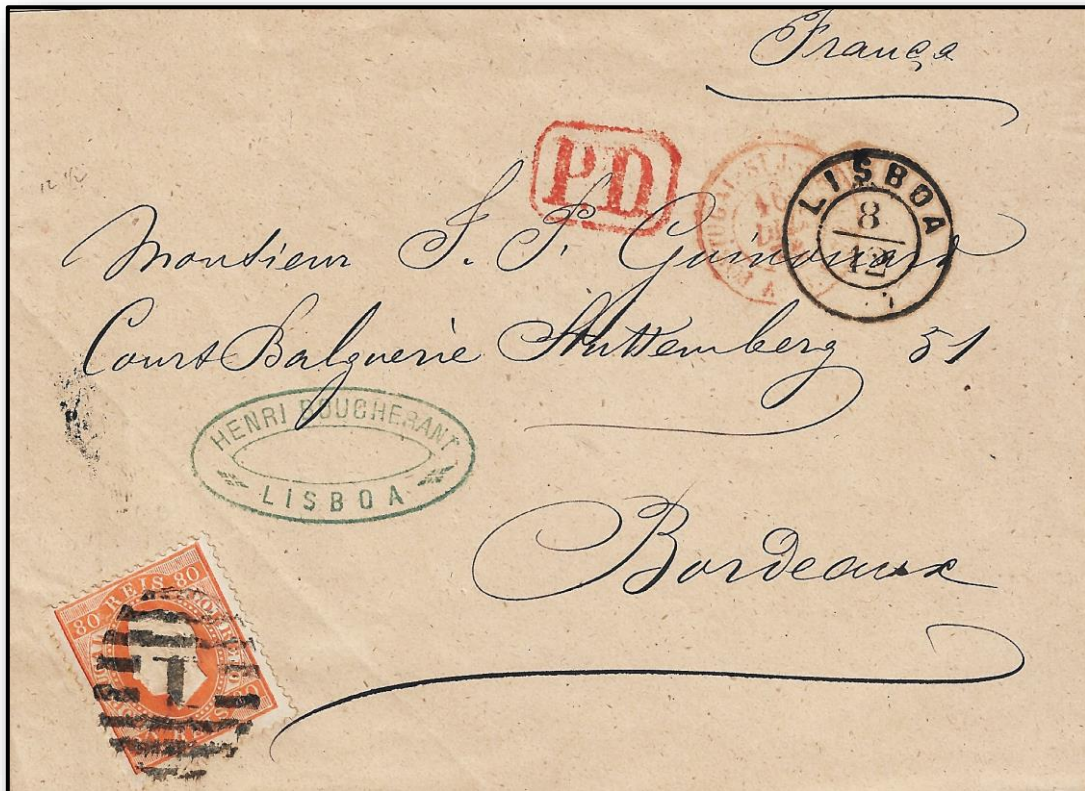 França
PD
LISBOA
8
12
12 1/2
Monsieur J. F.
Cours Balguerie Stuttemberg 51
HENRI BOUCHERANT
LISBOA
Bordeaux
80 REIS 80
1